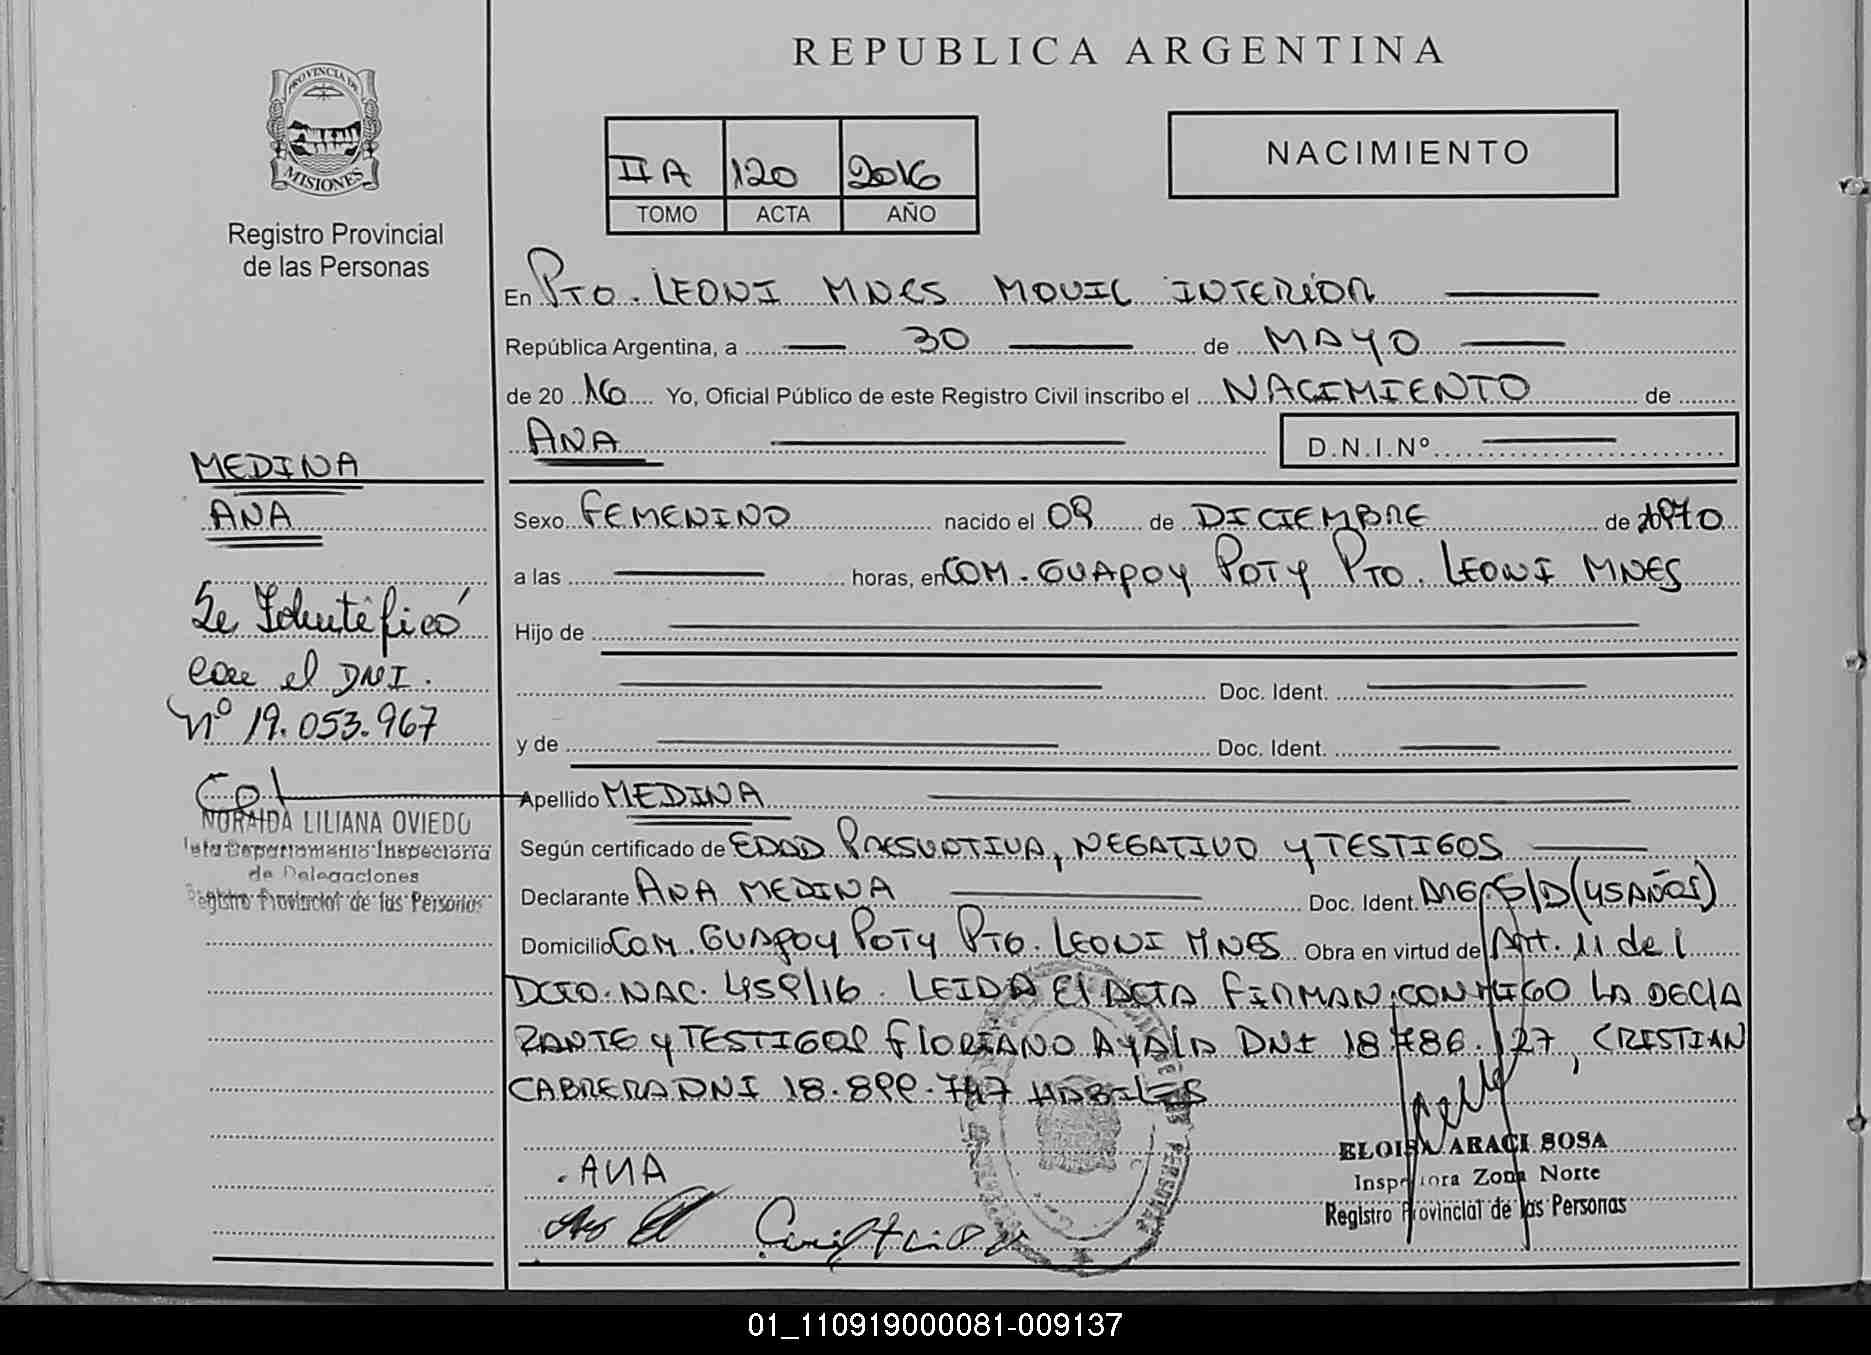 REPUBLICA ARGENTINA
PROVINCIA DE
MISIONES
Registro Provincial
de las Personas
IIA 120 2016
TOMO ACTA AÑO
NACIMIENTO
En PTO. LEONI MNES MOVIL INTERIOR
República Argentina, a 30 de MAYO
de 2016 Yo, Oficial Público de este Registro Civil inscribo el NACIMIENTO de
ANA D.N.I.Nº
MEDINA
ANA
Se Identificó
con el DNI.
Nº 19.053.967
NORAIDA LILIANA OVIEDO
Jefa Departamento Inspectoria
de Delegaciones
Registro Provincial de las Personas
Sexo FEMENINO nacido el 09 de DICIEMBRE de 1970
a las horas, en COM. GUAPOY POTY PTO. LEONI MNES
Hijo de
Doc. Ident.
y de Doc. Ident.
Apellido MEDINA
Según certificado de EDAD PRESUNTIVA, NEGATIVO Y TESTIGOS
Declarante ANA MEDINA Doc. Ident. S/D (45 AÑOS)
Domicilio COM. GUAPOY POTY PTO. LEONI MNES Obra en virtud de Art. 11 del
DCTO. NAC. 459/16. LEIDA El ACTA FIRMAN CONMIGO LA DECLA
RANTE Y TESTIGOS FLORIANO AYALA DNI 18.786.127, CRISTIAN
CABRERA DNI 18.899.747 HABILES
ANA
ELOISA ARACI SOSA
Inspectora Zona Norte
Registro Provincial de las Personas
01_110919000081-009137